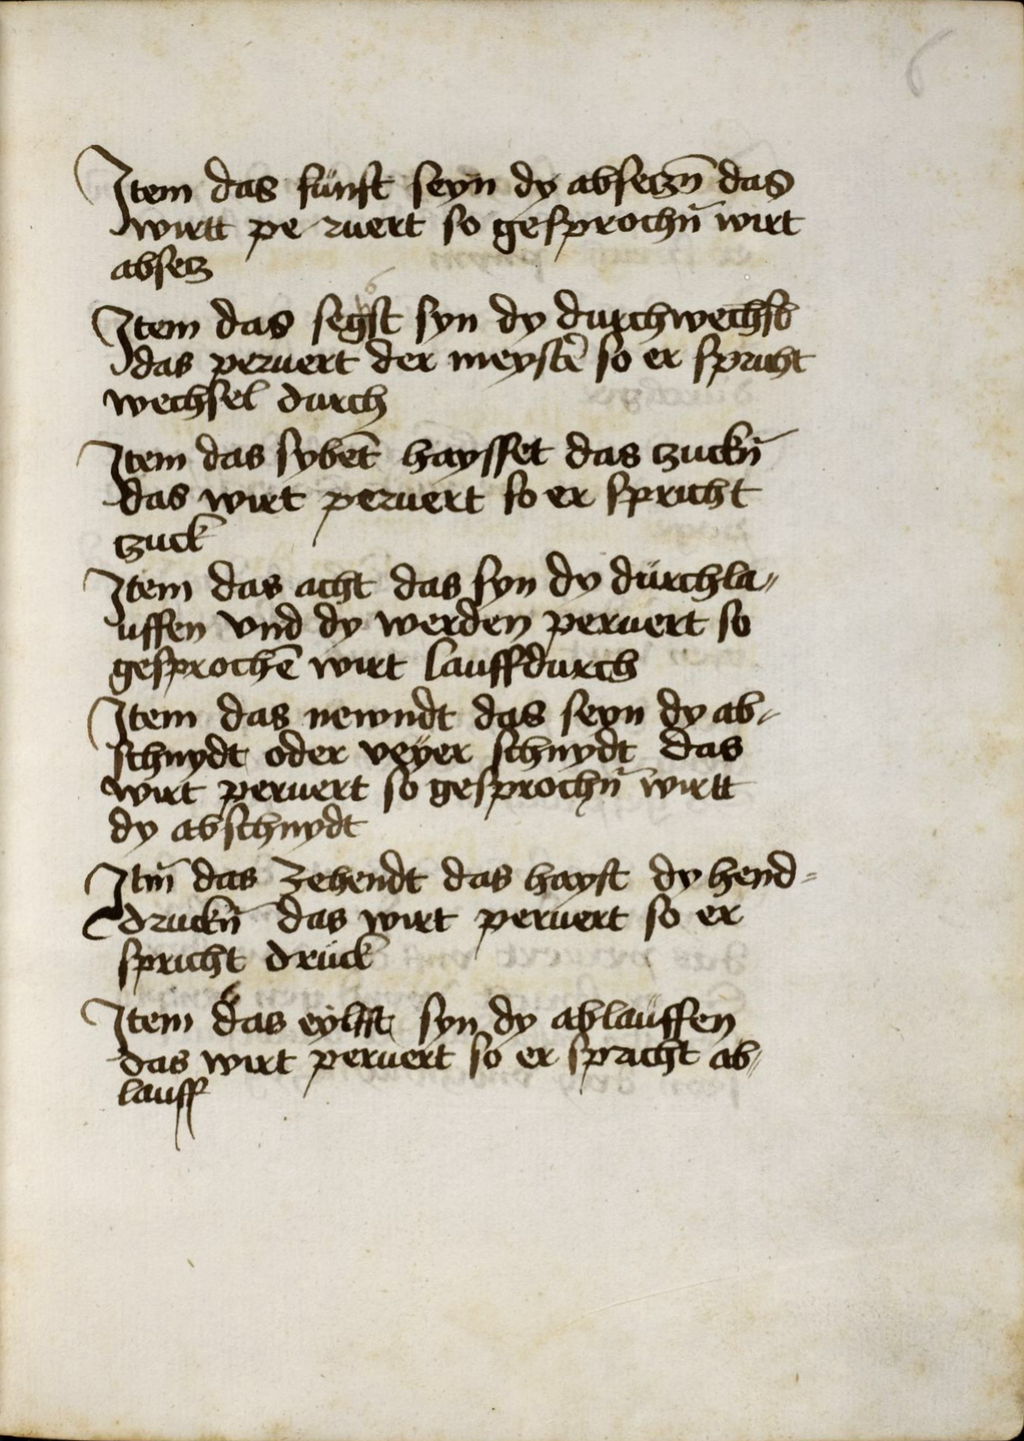 6
Item das fünft seyn dy absetzn̄ das
wirtt pe ruert so gesprochn̄ wirt
absetz
Item das segst syn dy durchwechsl
das peruert der meystē so er spricht
wechsel durch
Item das sybēt haysset das tzuckn̄
das wirt peruert so er spricht
tzuck
Item das acht das syn dy dürchla„
uffen vnd dy werden peruert so
gesprochē wirt lauffdurch
Item das newndt das seyn dy ab„
schnydt oder veÿer schnydt das
wirt peruert so gesprochn̄ wirtt
dy abschnydt
Itm̄ das zehendt das hayst dy hend„
druckn̄ das wirt peruert so er
spricht drück
Item das eylfft syn dy ablauffen
das wirt peruert so er spricht ab„
lauff